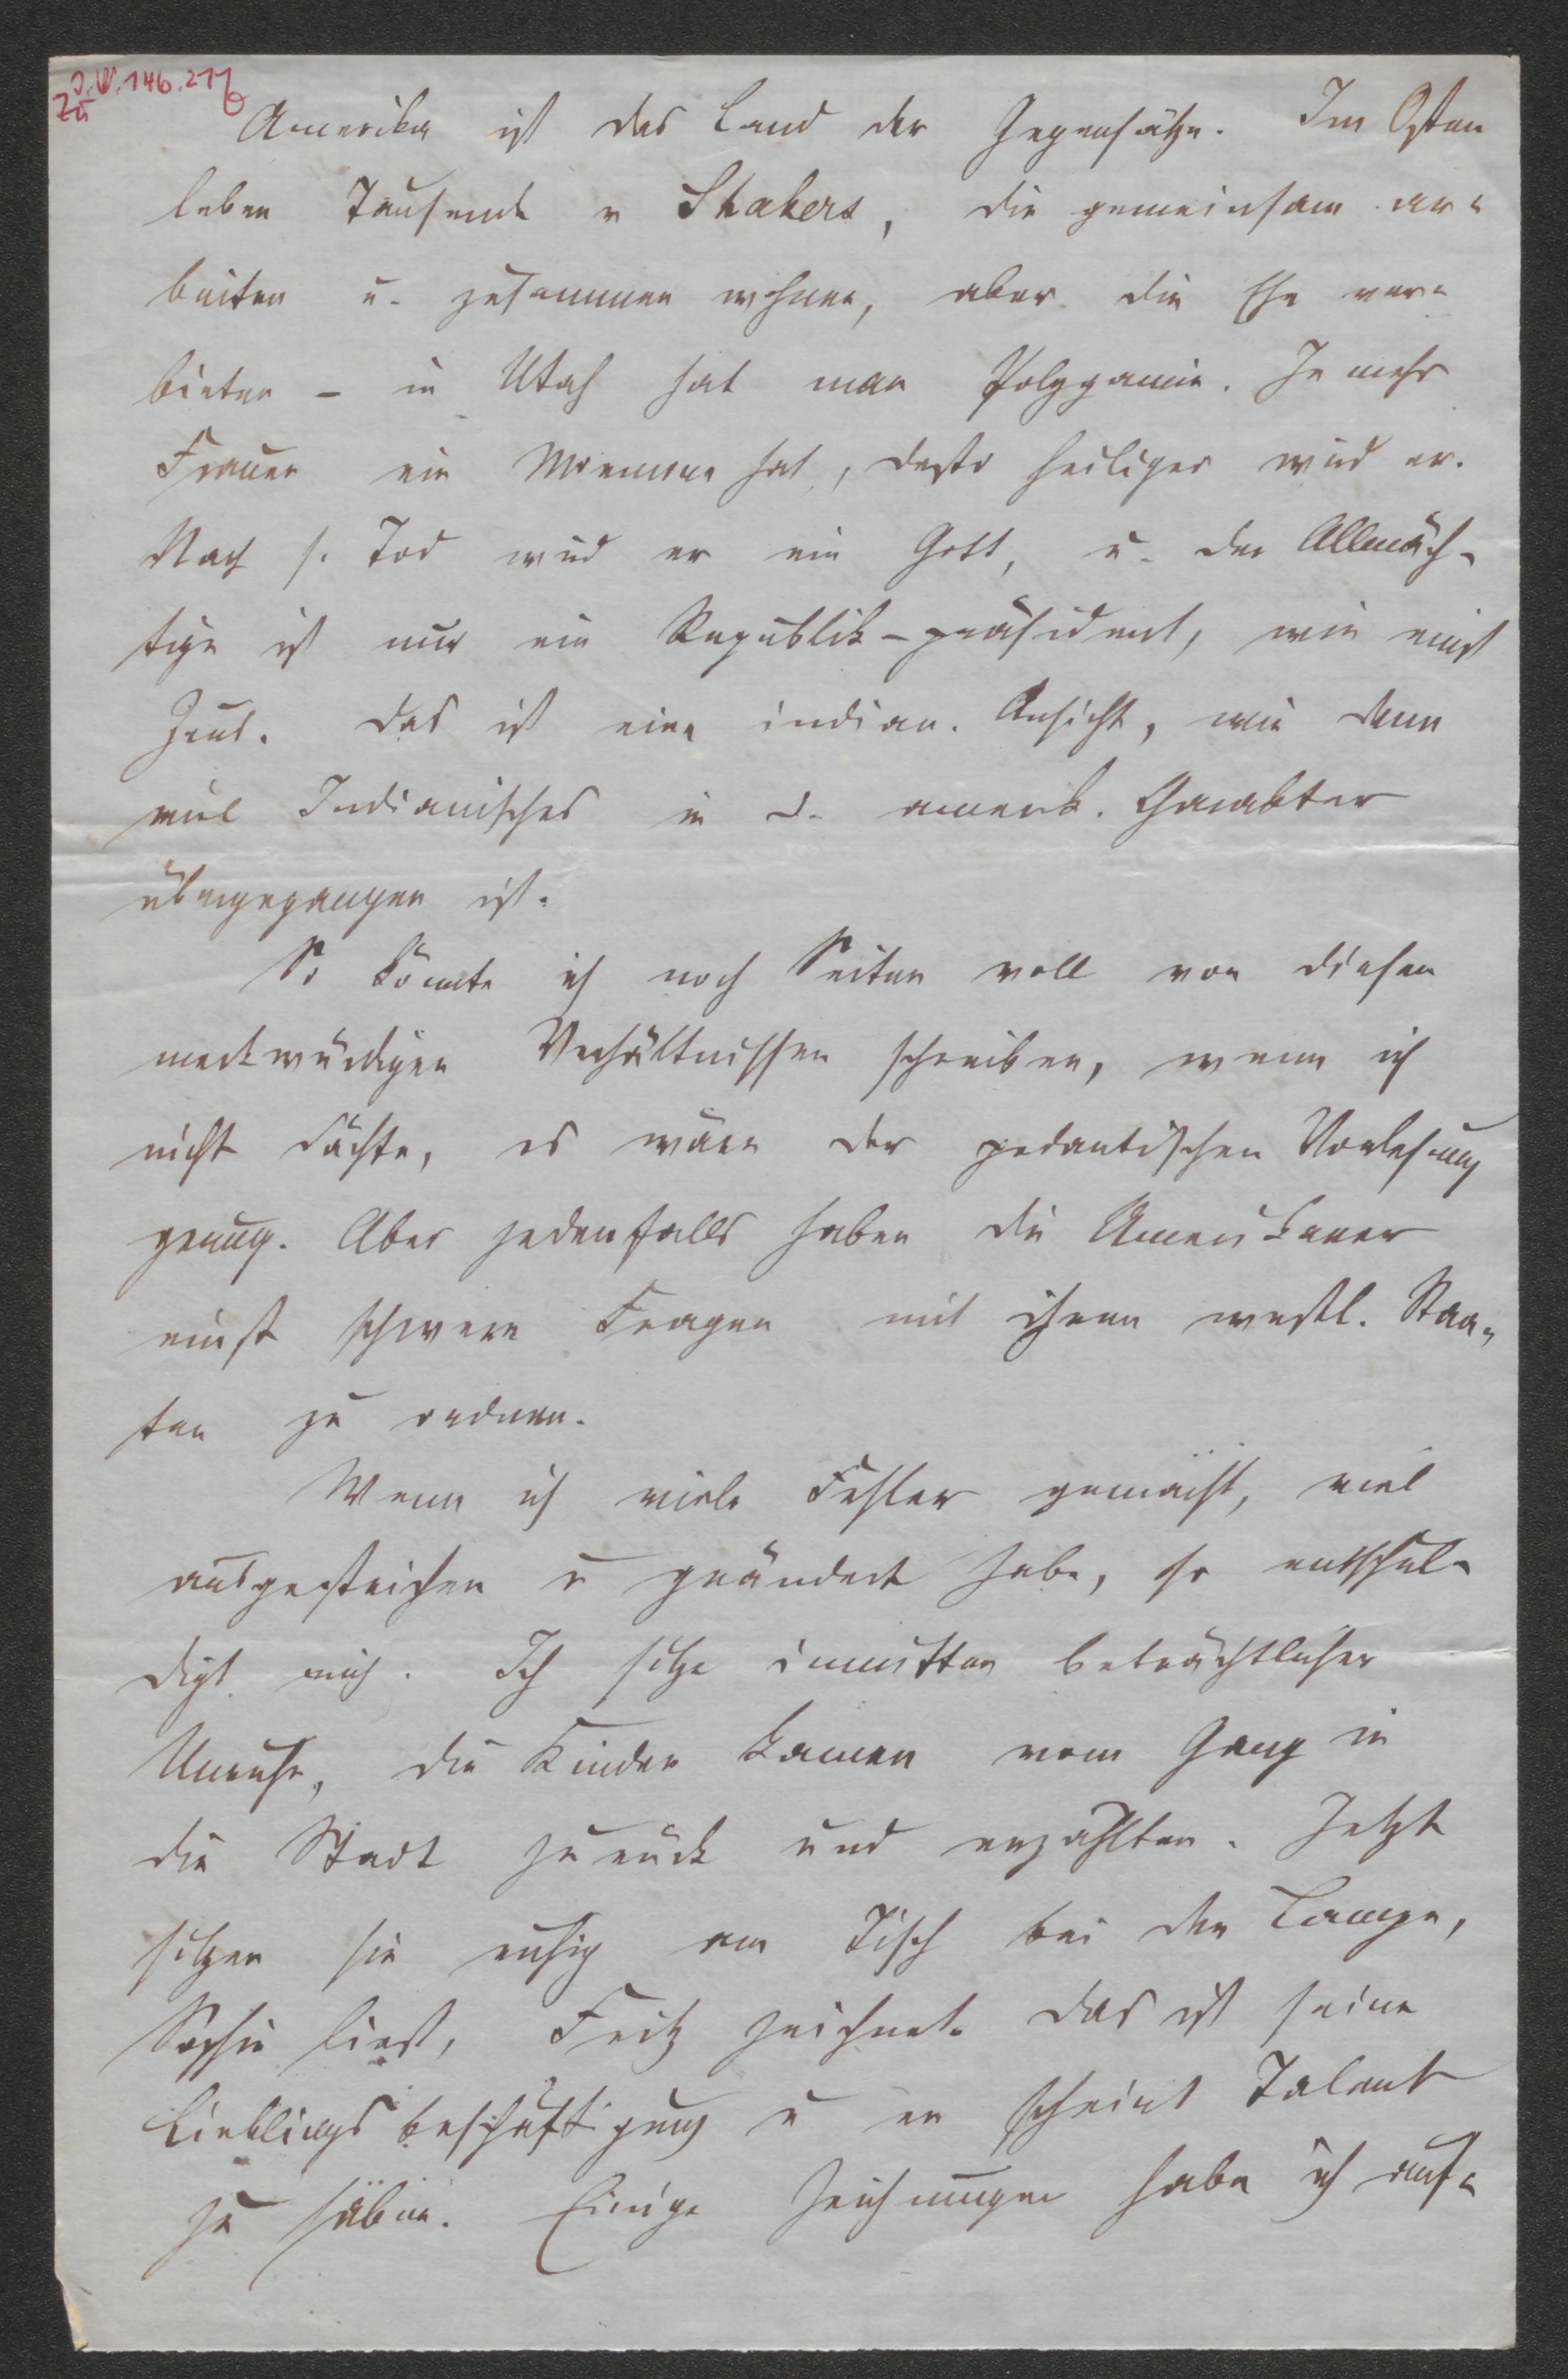 zu J. N. 146.217
Amerika ist das Land der Gegensätze. Im Osten
leben Tausende v Shakers, die gemeinsam ar-
beiten u. zusammen wohnen, aber die Ehe ver-
bieten – in Utah hat man Polygamie. Je mehr
Frauen ein Mormone hat, desto heiliger wird er.
Nach s. Tod wird er ein Gott, u. der Allmäch-
tige ist nur ein Republik-präsident, wie einst
Zeus. Das ist eine indian. Ansicht, wie denn
viel Indianisches in d. amerik. Charakter
übergegangen ist.
So könnte ich noch Seiten voll von diesen
merkwürdigen Verhältnissen schreiben, wenn ich
nicht dächte, es wäre der pedantischen Vorlesung
genug. Aber jedenfalls haben die Amerikaner
einst schwere Fragen mit ihren westl. Staa-
ten zu ordnen.
Wenn ich viele Fehler gemacht, viel
ausgestrichen u geändert habe, so entschul-
digt mich. Ich sitze inmitten beträchtlicher
Unruhe, die Kinder kamen vom Gang in
die Stadt zurück und erzählten. Jetzt
sitzen sie ruhig am Tisch bei der Lampe,
Sophie liest, Fritz zeichnet. Das ist seine
Lieblingsbeschäftigung u er scheint Talent
zu haben. Einige Zeichnungen habe ich auf-